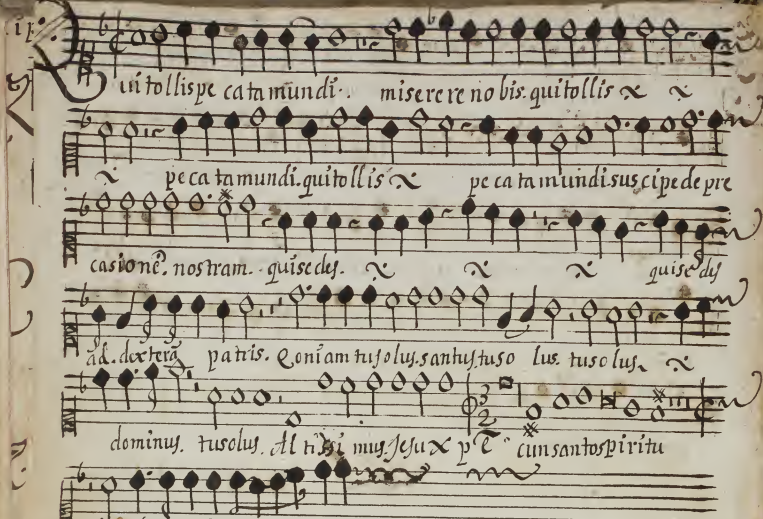 ui tollis pe cata mundi. miserere no bis. qui tollis
pe ca ta mundi. qui tollis pe ca ta mundi. sus cipe de pre
casionē. nostram. qui sedes. qui sedes
ad. dexterā patris. Qoniam tu solus. santus, tu so lus. tu solus.
dominus. tu solus. Al tissi mus. Jesu X pē cun santo spiritu